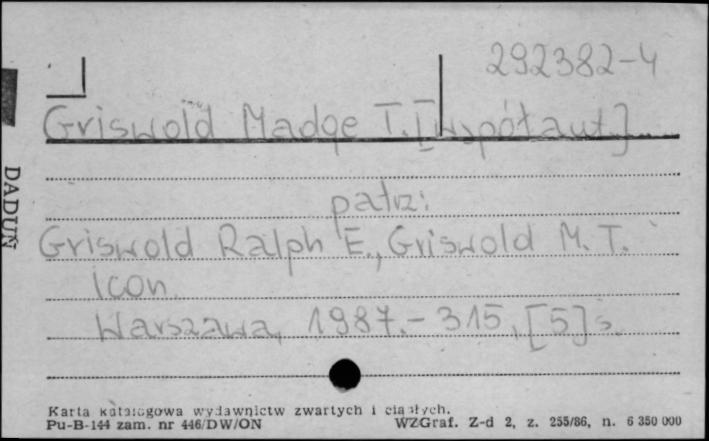 292382-4
Griswold Madge T. [współaut.]
patrz:
Griswold Ralph E., Griswold M. T.
Icon.
Warszawa, 1987. - 315, [5] s.
DADUŃ
Karta katalogowa wydawnictw zwartych i ciągłych.
Pu-B-144 zam. nr 446/DW/ON WZGraf. Z-d 2, z. 255/86, n. 6 350 000